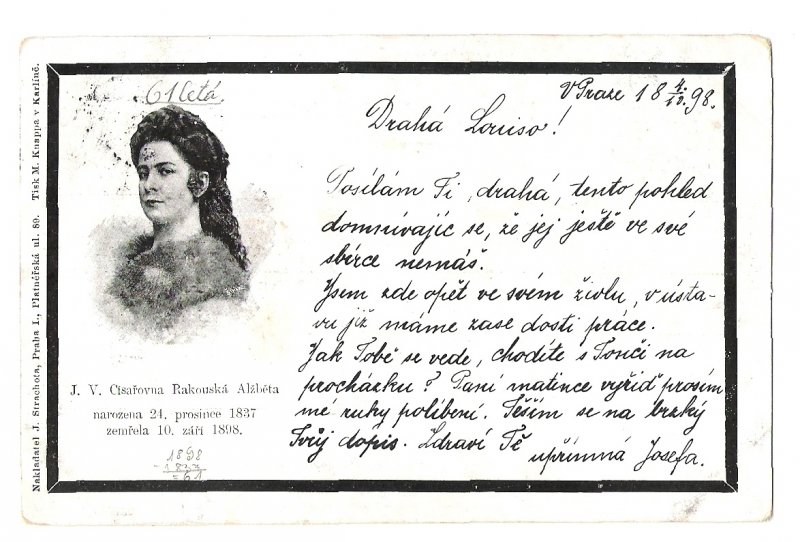 Nakladatel J. Strachota, Praha I., Platnéřská ul. 89. Tisk M. Knappa v Karlíně.
61letá.
V Praze 18 4./10. 98.
Drahá Louiso!
Posílám Ti, drahá, tento pohled
domnívajíc se, že jej ještě ve své
sbírce nemáš.
Jsem zde opět ve svém živlu, v ústa-
vu již máme zase dosti práce.
Jak Tobě se vede, chodíte s Tonči na
procházku? Paní matince vyřiď prosím
mé ruky políbení. Těším se na brzký
Tvůj dopis. Zdraví Tě
upřímná Josefa.
J. V. Císařovna Rakouská Alžběta
narozena 24. prosince 1837
zemřela 10. září 1898.
1898
- 1837
= 61